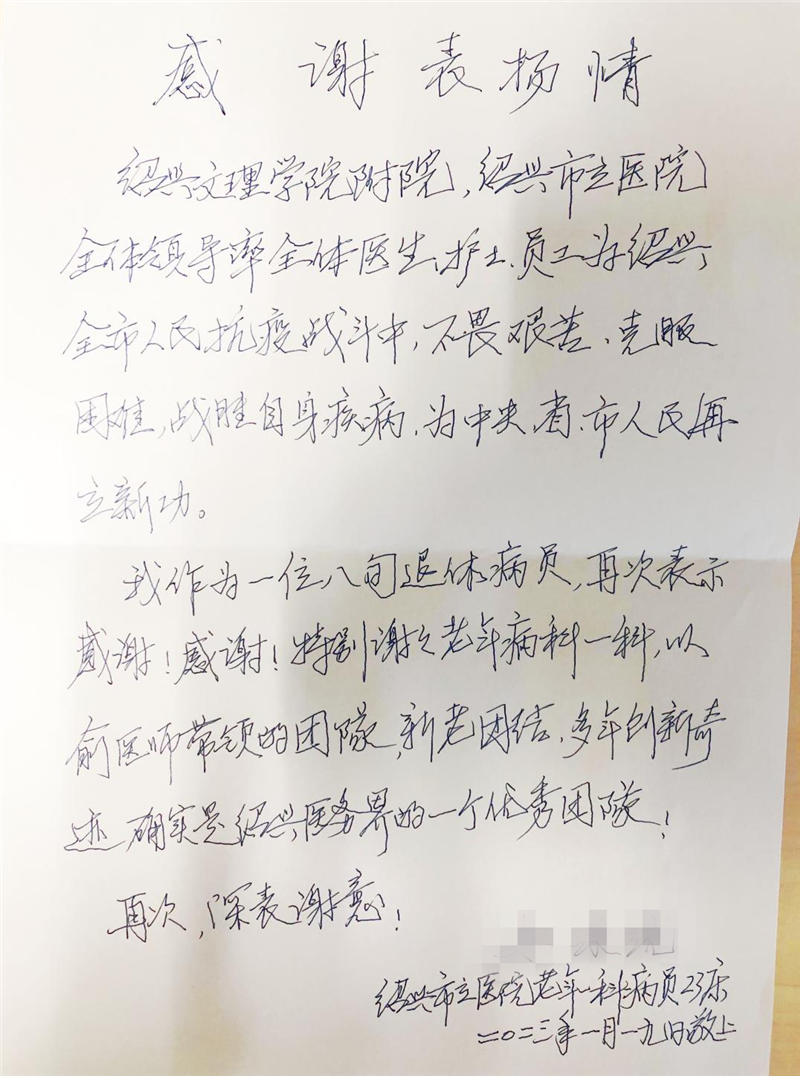 感谢表扬情
绍兴文理学院附院,绍兴市立医院
全体领导率全体医生、护士、员工为绍兴
全市人民抗疫战斗中,不畏艰苦、克服
困难,战胜自身疾病,为中央、省、市人民再
立新功。
我作为一位八旬退休病员,再次表示
感谢!感谢!特别谢谢老年病科一科,以
俞医师带领的团队,新老团结,多年创新奇
迹,确实是绍兴医务界的一个优秀团队!
再次,深表谢意!
绍兴市立医院老年一科病员23床
二〇二三年一月一九日敬上